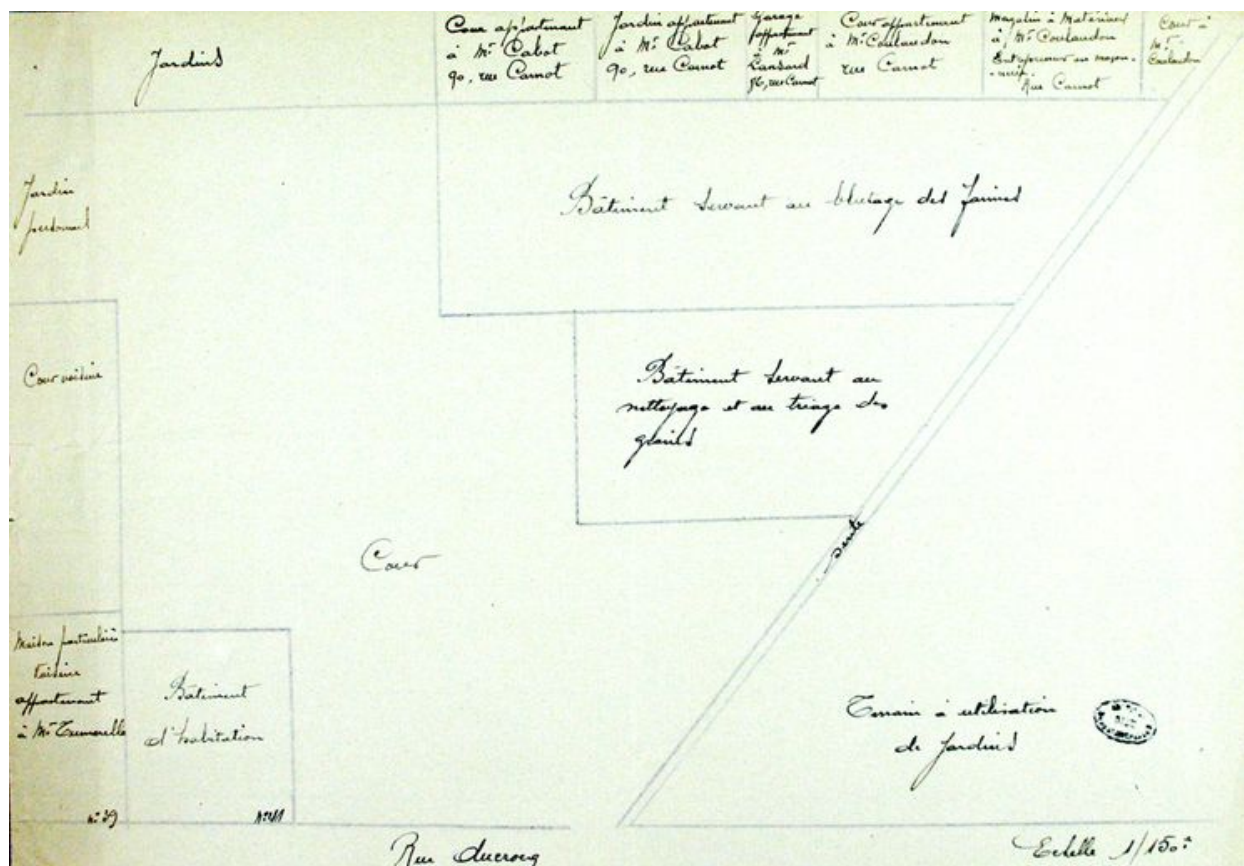 Jardins
Cour appartenant
à Mr Cabot
90, rue Carnot
Jardin appartenant
à Mr Cabot
90, rue Carnot
Garage
appartenant
à Mr
rue Carnot
Cour appartenant
à Mr Coulaudon
rue Carnot
Magasin à Matériaux
à Mr Coulaudon
Entrepreneur en maçon-
-nerie
Rue Carnot
Cour à
Mr
Coulaudon
Jardin
personnel
Bâtiment servant au blutage des farines
Cour voisine
Bâtiment servant au
nettoyage et au triage des
grains
Cour
sente
Maison particulière
voisine
appartenant
à Mr
n° 39
Bâtiment
d'habitation
n° 41
Terrain à utilisation
de Jardins
Rue Ducrocq
Echelle 1/150e